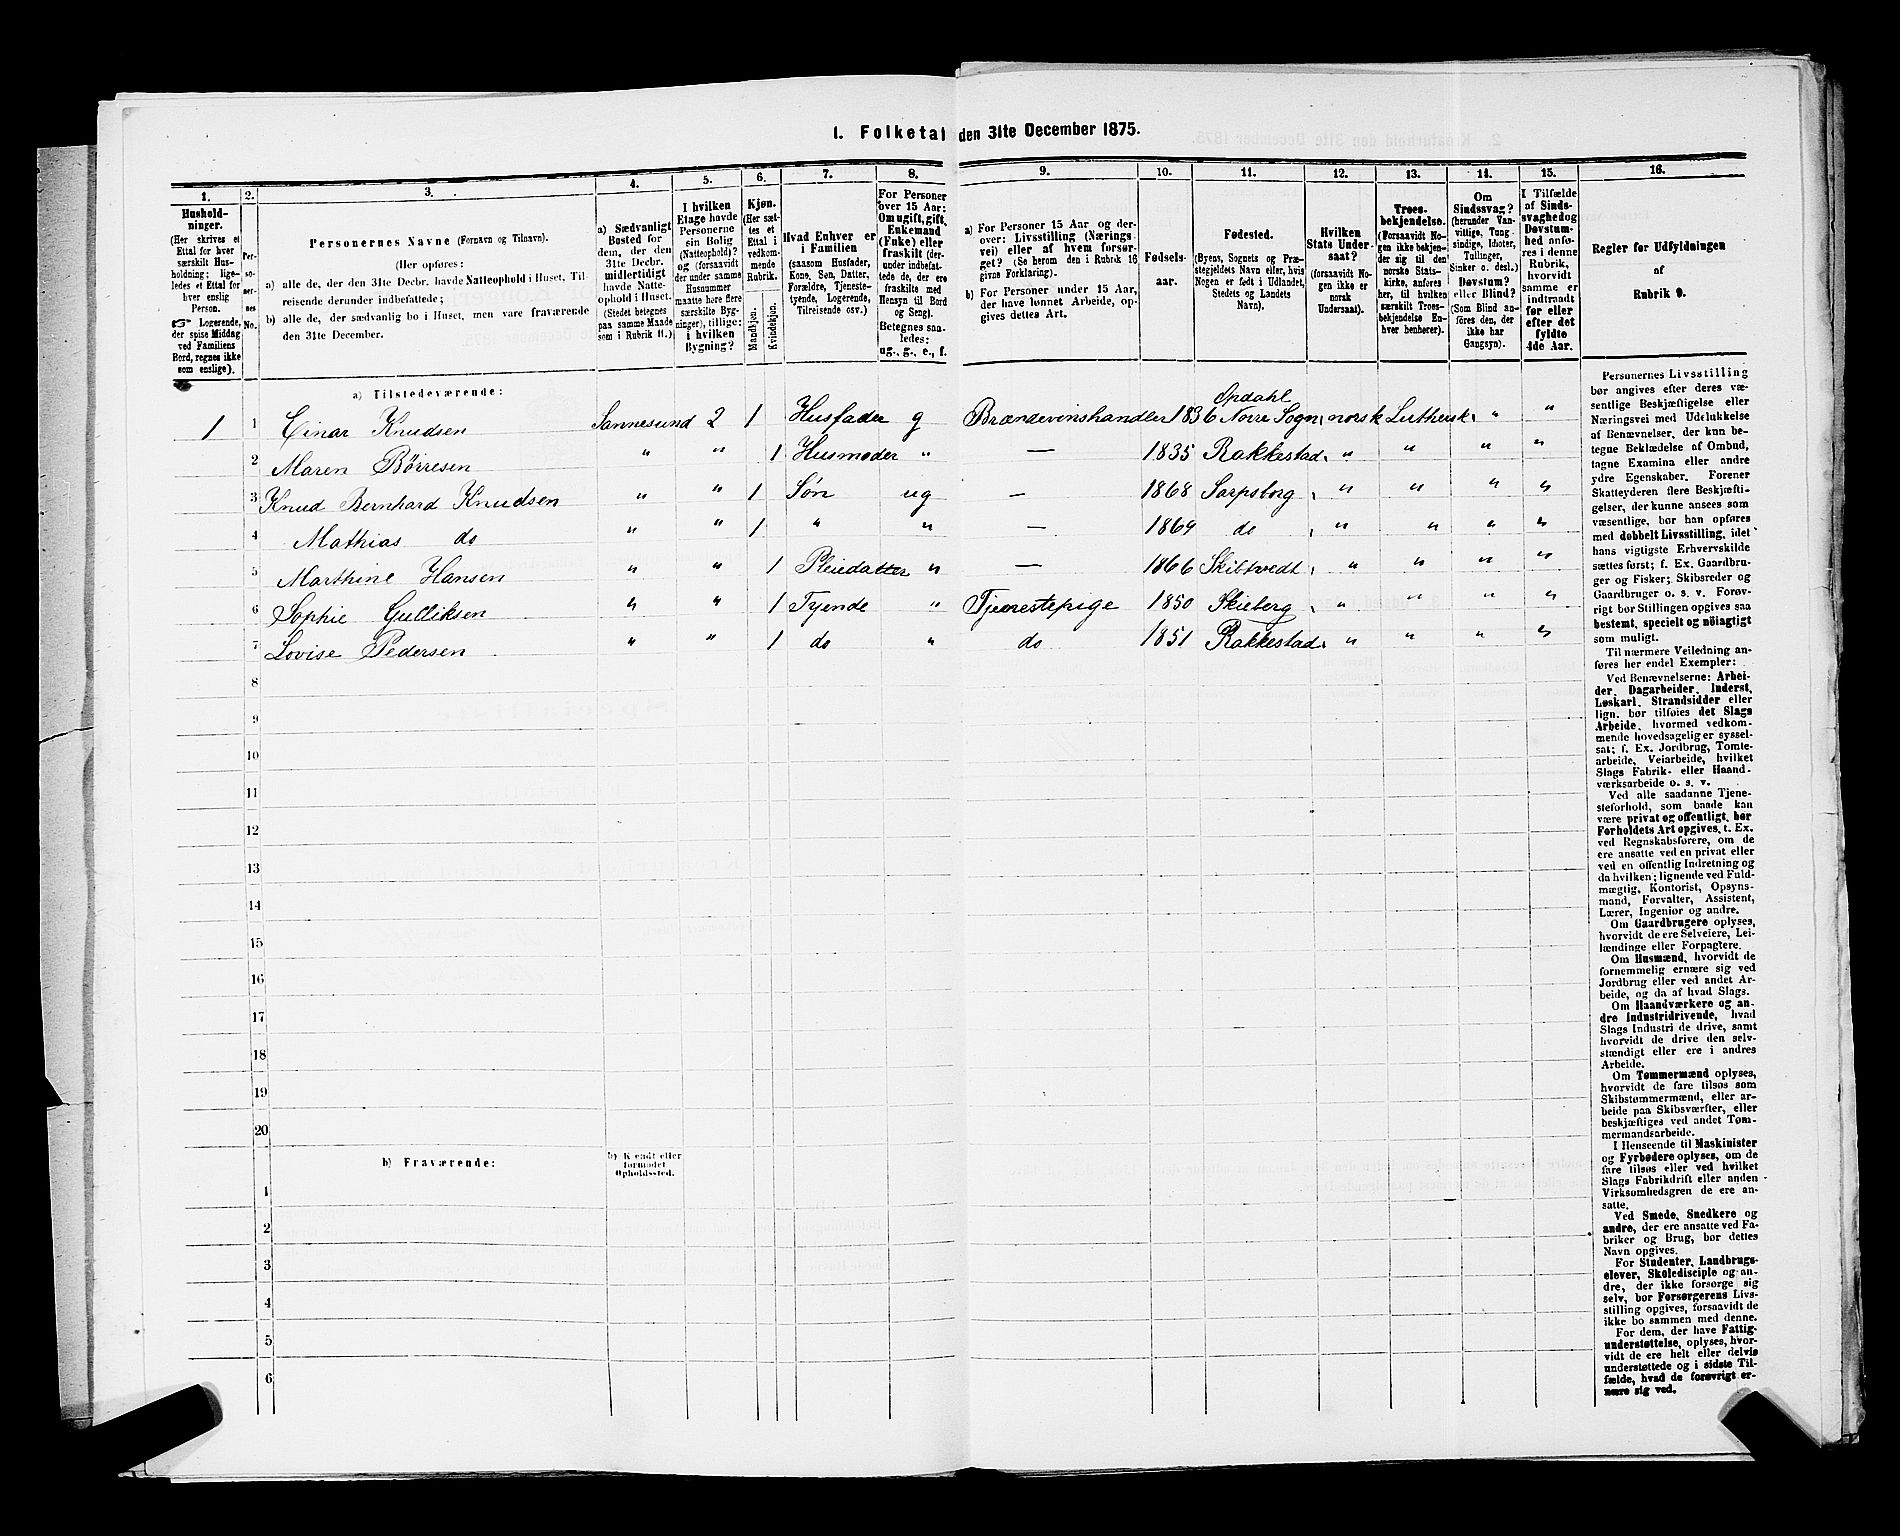 1. Folketal den 31te December 1875.
1.
2.
3.
4.
5.
6.
7.
8.
9.
10.
11.
12.
13.
14.
15.
16.
Hushold-
ninger.
(Her skrives et
Ettal for hver
særskilt Hus-
holdning; lige-
ledes et Ettal for
hver enslig
Person.
☞ Logerende,
der spise Middag
ved Familiens
Bord, regnes ikke
som enslige).
Per-
so-
ner-
nes
No.
Personernes Navne (Fornavn og Tilnavn).
(Her opføres:
a) alle de, der den 31te Decbr. havde Natteophold i Huset, Til-
reisende derunder indbefattede;
b) alle de, der sædvanlig bo i Huset, men vare fraværende
den 31te December.
a) Sædvanligt
Bosted for
dem, der den
31te Decbr.
midlertidigt
havde Natte-
ophold i Huset.
(Stedet betegnes
paa samme Maade
som i Rubrik 11.)
I hvilken
Etage havde
Personerne
sin Bolig
(Natteophold)?
og (forsaavidt
der under samme
Husnummer
maatte høre flere
særskilte Byg-
ninger), tillige:
i hvilken
Bygning?
Kjøn.
(Her sæt-
tes et
Ettal i
vedkom-
mende
Rubrik.
Mandkjøn.
Kvindekjøn.
Hvad Enhver er
i Familien
(saasom Husfader,
Kone, Søn, Datter,
Forældre, Tjeneste-
tyende, Logerende,
Tilreisende osv.)
For Personer
over 15 Aar:
Om ugift, gift,
Enkemand
(Enke) eller
fraskilt (der-
under indbefat-
tede de, der ere
fraskilte med
Hensyn til Bord
og Seng).
Betegnes saa-
ledes:
ug., g., e., f.
a) For Personer 15 Aar og der-
over: Livsstilling (Nærings-
vei) eller af hvem forsør-
get? (Se herom den i Rubrik 16
givne Forklaring).
b) For Personer under 15 Aar,
der have lønnet Arbeide, op-
gives dettes Art.
Fødsels-
aar.
Fødested.
(Byens, Sognets og Præ-
stegjeldets Navn eller, hvis
Nogen er født i Udlandet,
Stedets og Landets
Navn).
Hvilken
Stats Under-
saat?
(forsaavidt No-
gen ikke er
norsk
Undersaat).
Troes-
bekjendelse.
(Forsaavidt No-
gen ikke bekjen-
der sig til den
norske Stats-
kirke, anføres
her, til hvilken
særskilt Troes-
bekjendelse En-
hver henhører).
Om
Sindssvag?
(herunder Van-
vittige, Tung-
sindige, Idioter,
Tullinger,
Sinker o. desl.)
Døvstum?
eller Blind?
(Som Blind an-
føres den, der
ikke har
Gangsyn).
I Tilfælde
af Sinds-
svaghed og
Døvstum-
hed anfø-
res i denne
Rubrik,
hvorvidt
samme er
indtraadt
før eller
efter det
fyldte
4de Aar.
Regler for Udfyldningen
af
Rubrik 9.
a) Tilstedeværende:
Opdahl
1 1 Einar Knudsen Sannesund 2 1 Husfader g Brændevinshandler 1836 Norre Sogn norsk Luthersk " "
2 Maren Børresen " " 1 Husmoder " — 1835 Rakkestad " " " "
3 Knud Bernhard Knudsen " " 1 Søn ug — 1868 Sarpsborg " " " "
4 Mathias do " " 1 " " — 1869 do " " " "
5 Marthine Hansen " " 1 Pleiedatter " — 1866 Skibtvedt " " " "
6 Sophie Gulliksen " " 1 Tyende " Tjenestepige 1850 Skieberg " " " "
7 Lovise Pedersen " " 1 do " do 1851 Rakkestad " " " "
8
9
10
11
12
13
14
15
16
17
18
19
20
b) Fraværende:
b) Kendt eller
formodet
Opholdssted.
1
2
3
4
5
6
Personernes Livsstilling
bør angives efter deres væ-
sentlige Beskjæftigelse eller
Næringsvei med Udelukkelse
af Benævnelser, der kun be-
tegne Beklædelse af Ombud,
tagne Examina eller andre
ydre Egenskaber. Forener
Skatteyderen flere Beskjæfti-
gelser, der kunne ansees som
væsentlige, bør han opføres
med dobbelt Livsstilling, idet
hans vigtigste Erhvervskilde
sættes først; f. Ex. Gaardbru-
ger og Fisker; Skibsreder og
Gaardbruger o. s. v. Forøv-
rigt bør Stillingen opgives saa
bestemt, specielt og nøiagtigt
som muligt.
Til nærmere Veiledning an-
føres her endel Exempler:
Ved Benævnelserne: Arbei-
der, Dagarbeider, Inderst,
Løskarl, Strandsidder eller
lign. bør tilføies det Slags
Arbeide, hvormed vedkom-
mende hovedsagelig er syssel-
sat; f. Ex. Jordbrug, Tomte-
arbeide, Veiarbeide, hvilket
Slags Fabrik- eller Haand-
værksarbeide o. s. v.
Ved alle saadanne Tjene-
steforhold, som baade kan
være privat og offentligt, bør
Forholdets Art opgives, t. Ex.
ved Regnskabsførere, om de
ere ansatte ved en privat eller
ved en offentlig Indretning og
da hvilken; lignende ved Fuld-
mægtig, Kontorist, Opsyns-
mand, Forvalter, Assistent,
Lærer, Ingeniør og andre.
Om Gaardbrugere oplyses,
hvorvidt de ere Selveiere, Lei-
lændinge eller Forpagtere.
Om Husmænd, hvorvidt de
fornemmelig ernære sig ved
Jordbrug eller ved andet Ar-
beide, og da af hvad Slags.
Om Haandværkere og an-
dre Industridrivende, hvad
Slags Industri de drive, samt
hvorvidt de drive den selv-
stændigt eller ere i andres
Arbeide.
Om Tømmermænd oplyses,
hvorvidt de fare tilsøs som
Skibstømmermænd, eller ar-
beide paa Skibsværfter, eller
beskjæftiges ved andet Tøm-
mermandsarbeide.
I Henseende til Maskinister
og Fyrbødere oplyses, om de
fare tilsøs eller ved hvilket
Slags Fabrikdrift eller anden
Virksomhedsgren de ere an-
satte.
Ved Smede, Snedkere og
andre, der ere ansatte ved Fa-
briker og Brug, bør dettes
Navn opgives.
For Studenter, Landbrugs-
elever, Skoledisciple og an-
dre, der ikke forsørge sig
selv, bør Forsørgerens Livs-
stilling opgives, forsaavidt de
ikke bo sammen med denne.
For dem, der have Fattig-
understøttelse, oplyses, hvor-
vidt de ere helt eller delvis
understøttede og i sidste Til-
fælde, hvad de forøvrigt er-
nære sig ved.